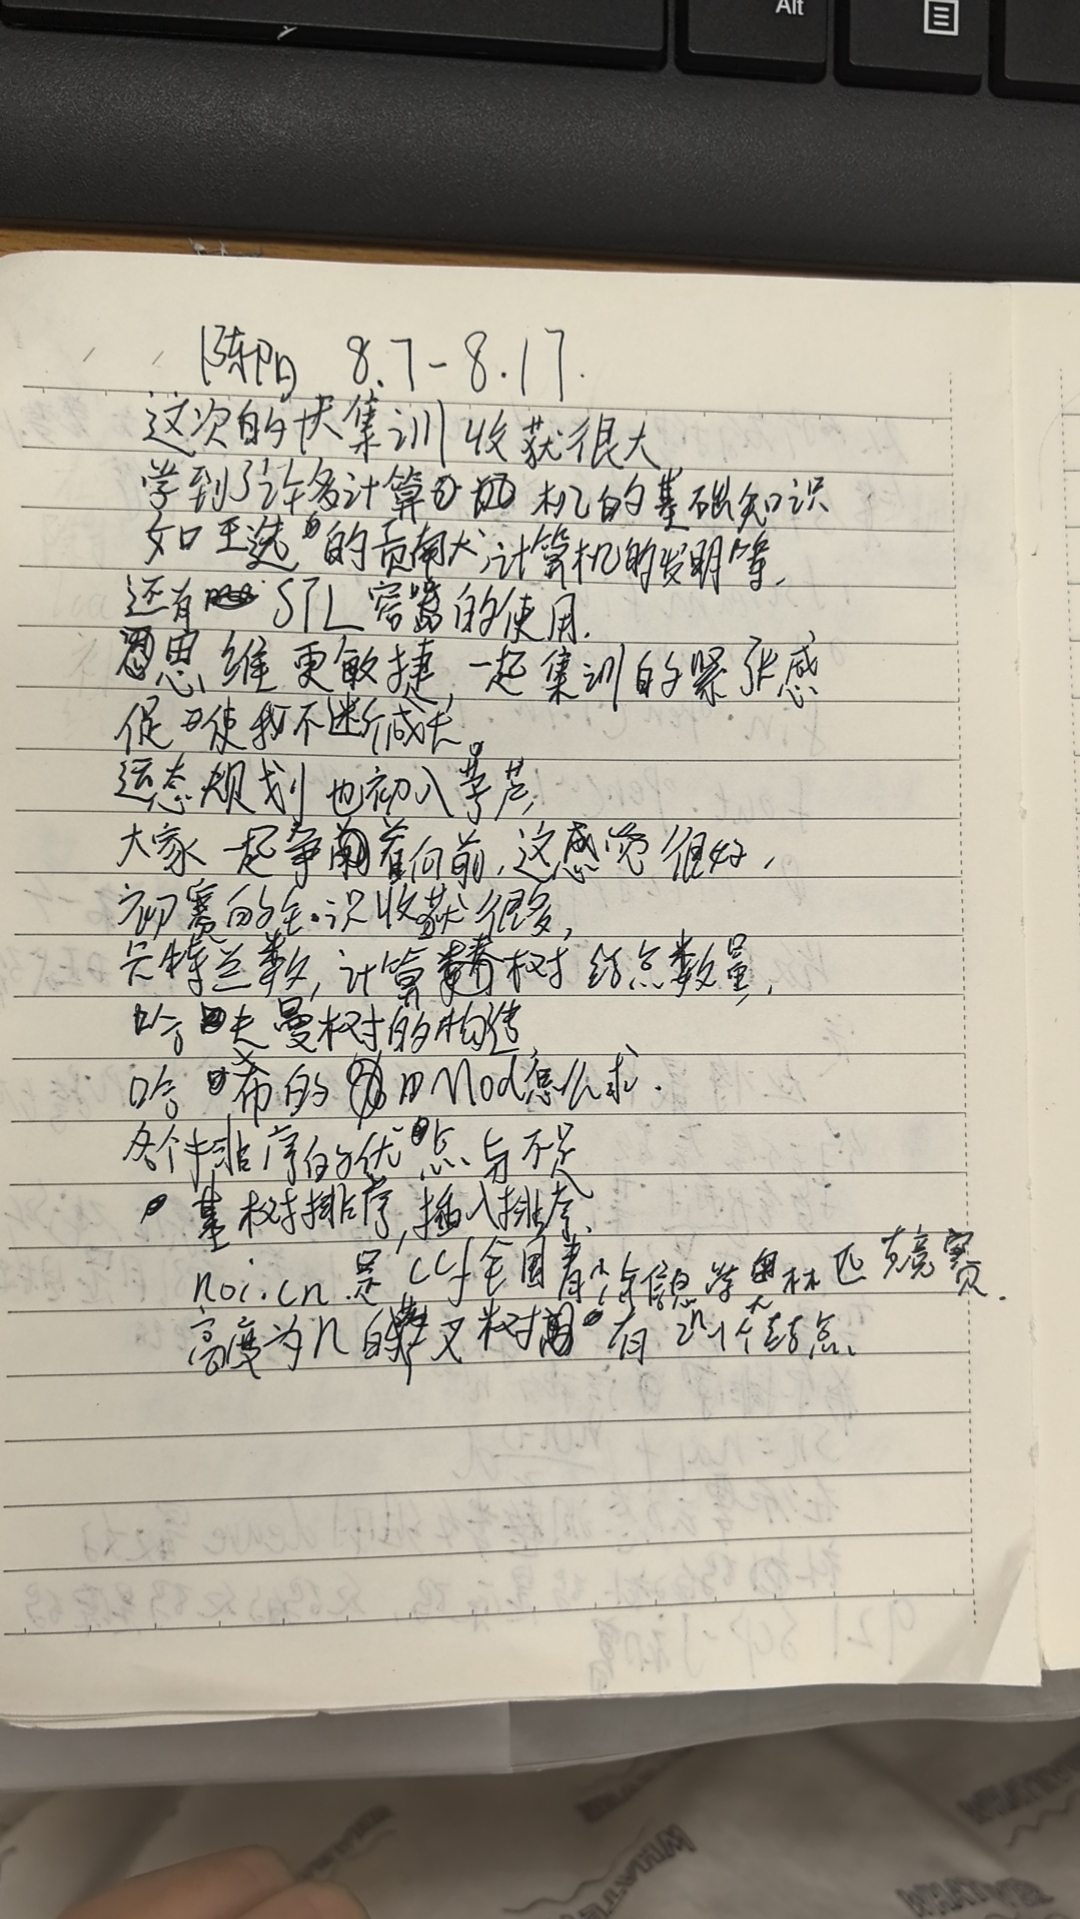 Alt
陈阳 8.7-8.17.
这次的集训收获很大
学到了许多计算机的基础知识
如王选的贡献,计算机的发明等,
还有STL容器的使用.
思维更敏捷,一起集训的紧张感
促使我不断成长。
动态规划也初入
大家一起争着向前,这感觉很好,
初赛的知识收获很多,
卡特兰数,计算树结点数量,
哈夫曼树的构造
哈希的Mod怎么求.
各个排序的优点与不足
基树排序,插入排序
noi.cn 是CCF全国青少年信息学奥林匹克竞赛.
高度为n的叉树有2ⁿ-1个结点.